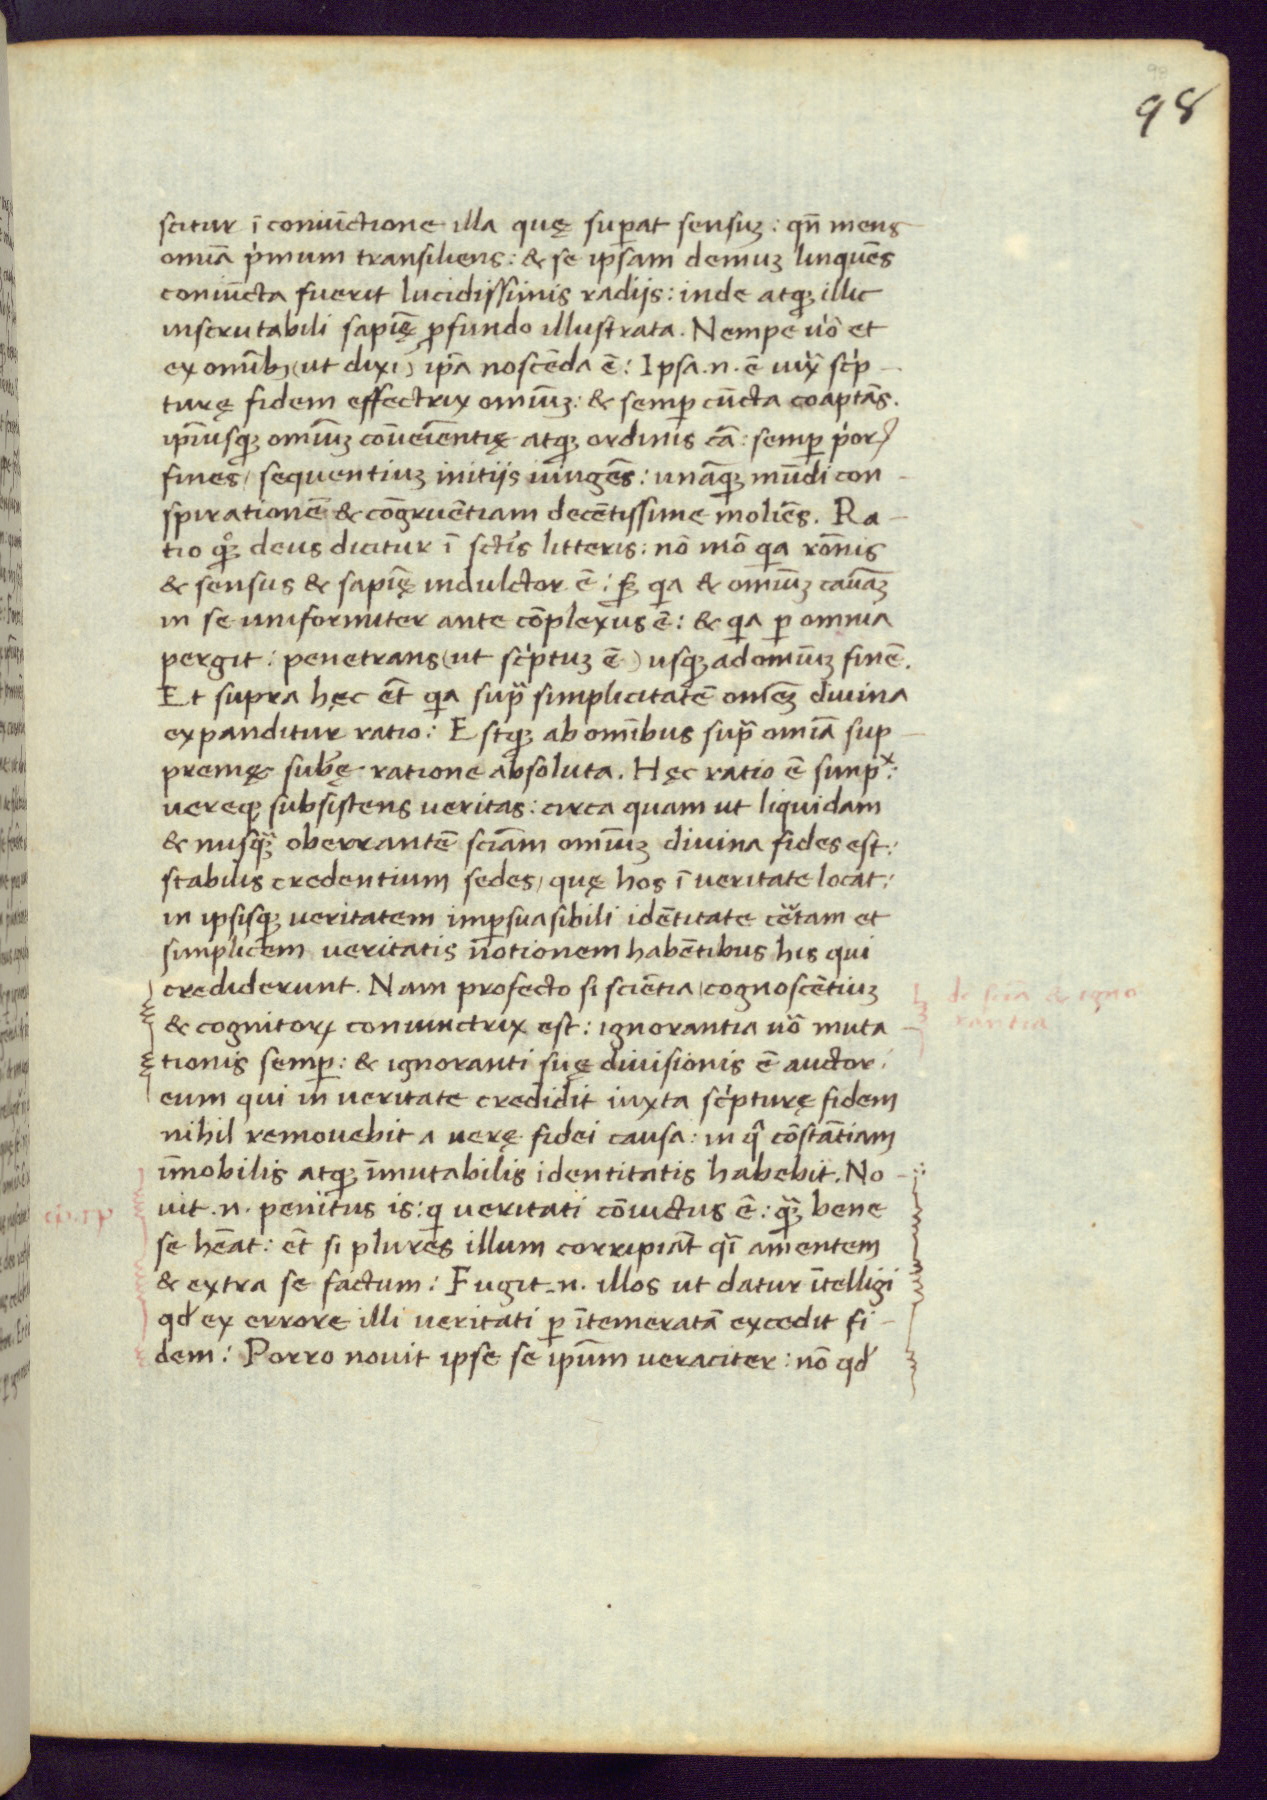 98
scitur ī coniūctione illa quę sup̄at sensuꝫ: qn̄ mens
omīa p̍mum transiliens: & se ipsam demuꝫ linquēs
coniūcta fuerit lucidissimis radijs: inde atqꝫ illic
inscrutabili sapīę ꝓfundo illustrata. Nempe u̍o et
ex omībꝫ (ut dixi) ip̄a noscēda ē: Ipsa .n. ē iux̄ sc̍p
turę fidem effectrix omīuꝫ: & semꝑ cūcta coaptās.
ip̄iusqꝫ omīuꝫ cōueīentię atqꝫ ordinis cā: semꝑ p̍orꝝ
fines, sequentiuꝫ initijs iūngēs: unāqꝫ mūdi con
spirationē & cōgruētiam decētissime moliēs. Ra
tio qꝫ̊ deus dicitur ī sct̄is litteris: nō mō qa rōnis
& sensus & sapīę indultor ē: sꝫ qa & omīuꝫ cāuaꝫ
in se uniformiter ante cōplexus ē: & qa ꝑ omnia
pergit: penetrans (ut sc̍ptuꝫ ē) usqꝫ ad omīuꝫ finē.
Et supra hęc ēt qa sup̄ simplicitatē omēꝫ diuina
expanditur ratio: Estqꝫ ab omībus sup̄ omīa sup
premę sub̄ę ratione absoluta. Hęc ratio ē simpˣ:
uereqꝫ subsistens ueritas: circa quam ut liquidam
& nusqꝫ̄ oberrantē sciām omīuꝫ diuina fides est:
stabilis credentium sedes, quę hos ī ueritate locat:
in ipsisqꝫ ueritatem imꝑsuasibili idētitate cētam et
simplicem ueritatis notionem habētibus his qui
crediderunt. Nam profecto si sciētia, cognoscētiuꝫ
& cognitorꝝ coniunctrix est: ignorantia uō muta
tionis semꝑ: & ignoranti suę diuisionis ē auctor:
eum qui in ueritate credidit iuxta sc̍pturę fidem
nihil remouebit a uerę fidei causa: in q̄ cōstātiam
īmobilis atqꝫ īmutabilis identitatis habebit. No
uit .n. penitus is: q ueritati cōiuctus ē: qꝫ̄ bene
se hēat: ēt si plures illum corripiāt qī amentem
& extra se factum: Fugit .n. illos ut datur ītelligi
qđ ex errore illi ueritati ꝑ ītemeratā excedit fi
dem: Porro nouit ipse se ip̄um ueraciter: nō qđ
de scīa & igno
rantia